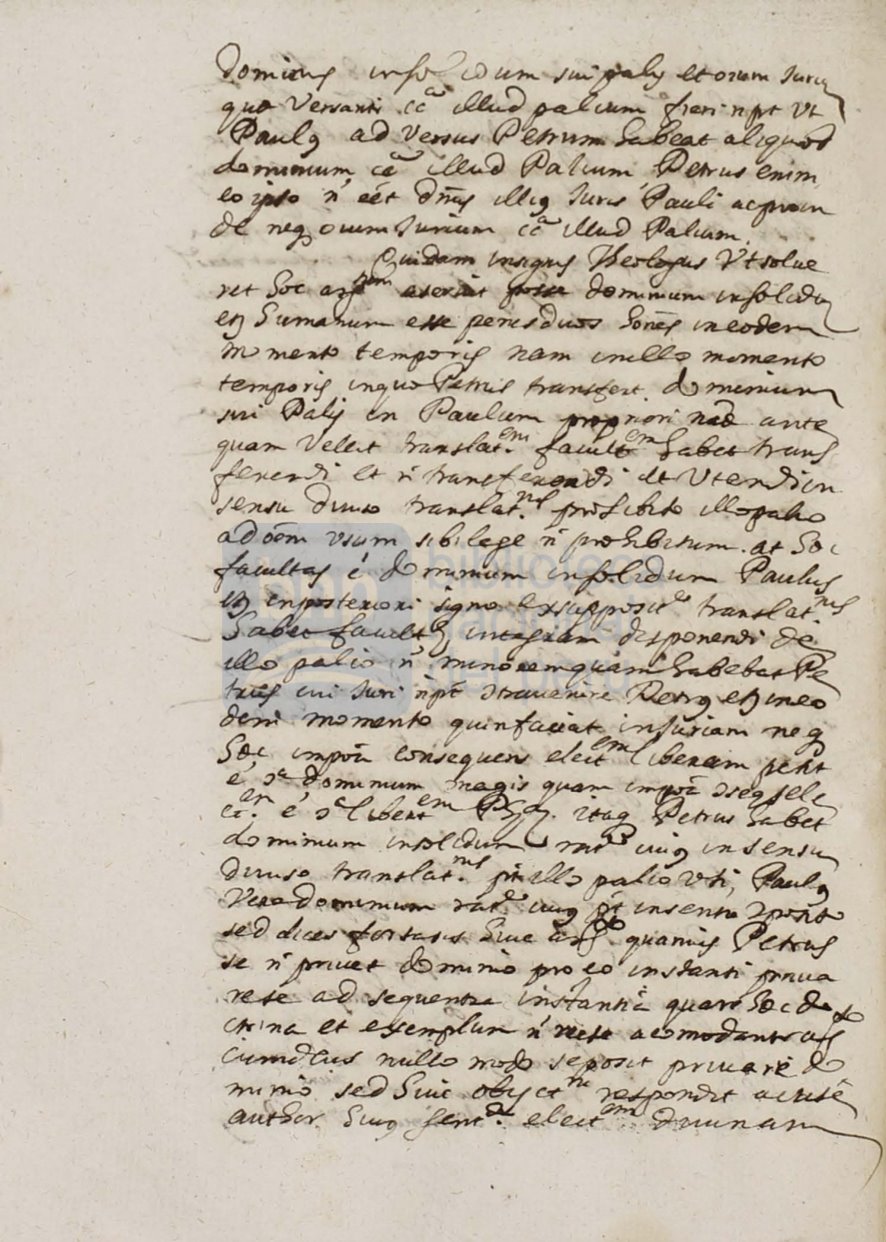 dominus insolidum sui palij et oium Juriu
quo Versanti cca illud palium fieri npt Vt
Paulq adversus Petrum habeat aliquod
dominium cca illud Palium, Petrus enim
eo ipso n eet dns illiq Juris Pauli ac proin
de neq oium Jurium cca illud Palium.
Quidam insignis Theologus Vt solve
ret hoc argtm aserit posse dominium insolidu
etq humanum esse penes duos hoes in eodem
momento temporis nam in illo momento
temporis in quo Petrus transfert dominium
sui Palij in Paulum pro priori nae ante
quam Vellet translatem facultem habet trans
ferendi et n transferendi et Vtendi in
sensu diviso translatnis prohibito illo palio
ad oem usum sibi lege n prohibitum. at hoc
facultas e dominium insolidum Paulus
etq in posteriori signo ex suppositne translatnis
habet facultem integram disponendi de
illo palio n minorem quam habebat Pe
trus cui Juri npt contravenire Petrq etq in eo
dem momento quin faciat injuriam neq
hoc impoa consequens electem liberam perit
e ca dominium magis quam impoa conseq elec
em e ca libertem itaq Petrus habet
dominium insolidum rate cuiq in sensu
diviso translatnis pt illo palio uti, Paulq
Vero dominium rate cuiq pt in sensu composito
sed dices fortasis huic argto quamvis Petrus
se n privet dominio pro eo instanti priva
re se ad sequentia instantia quare hoc do
ctrina et exemplum n recte acomodantur
nullo modo se posit privare do
minio sed huic objectni respondet acuté
author huiq sente electem divinam